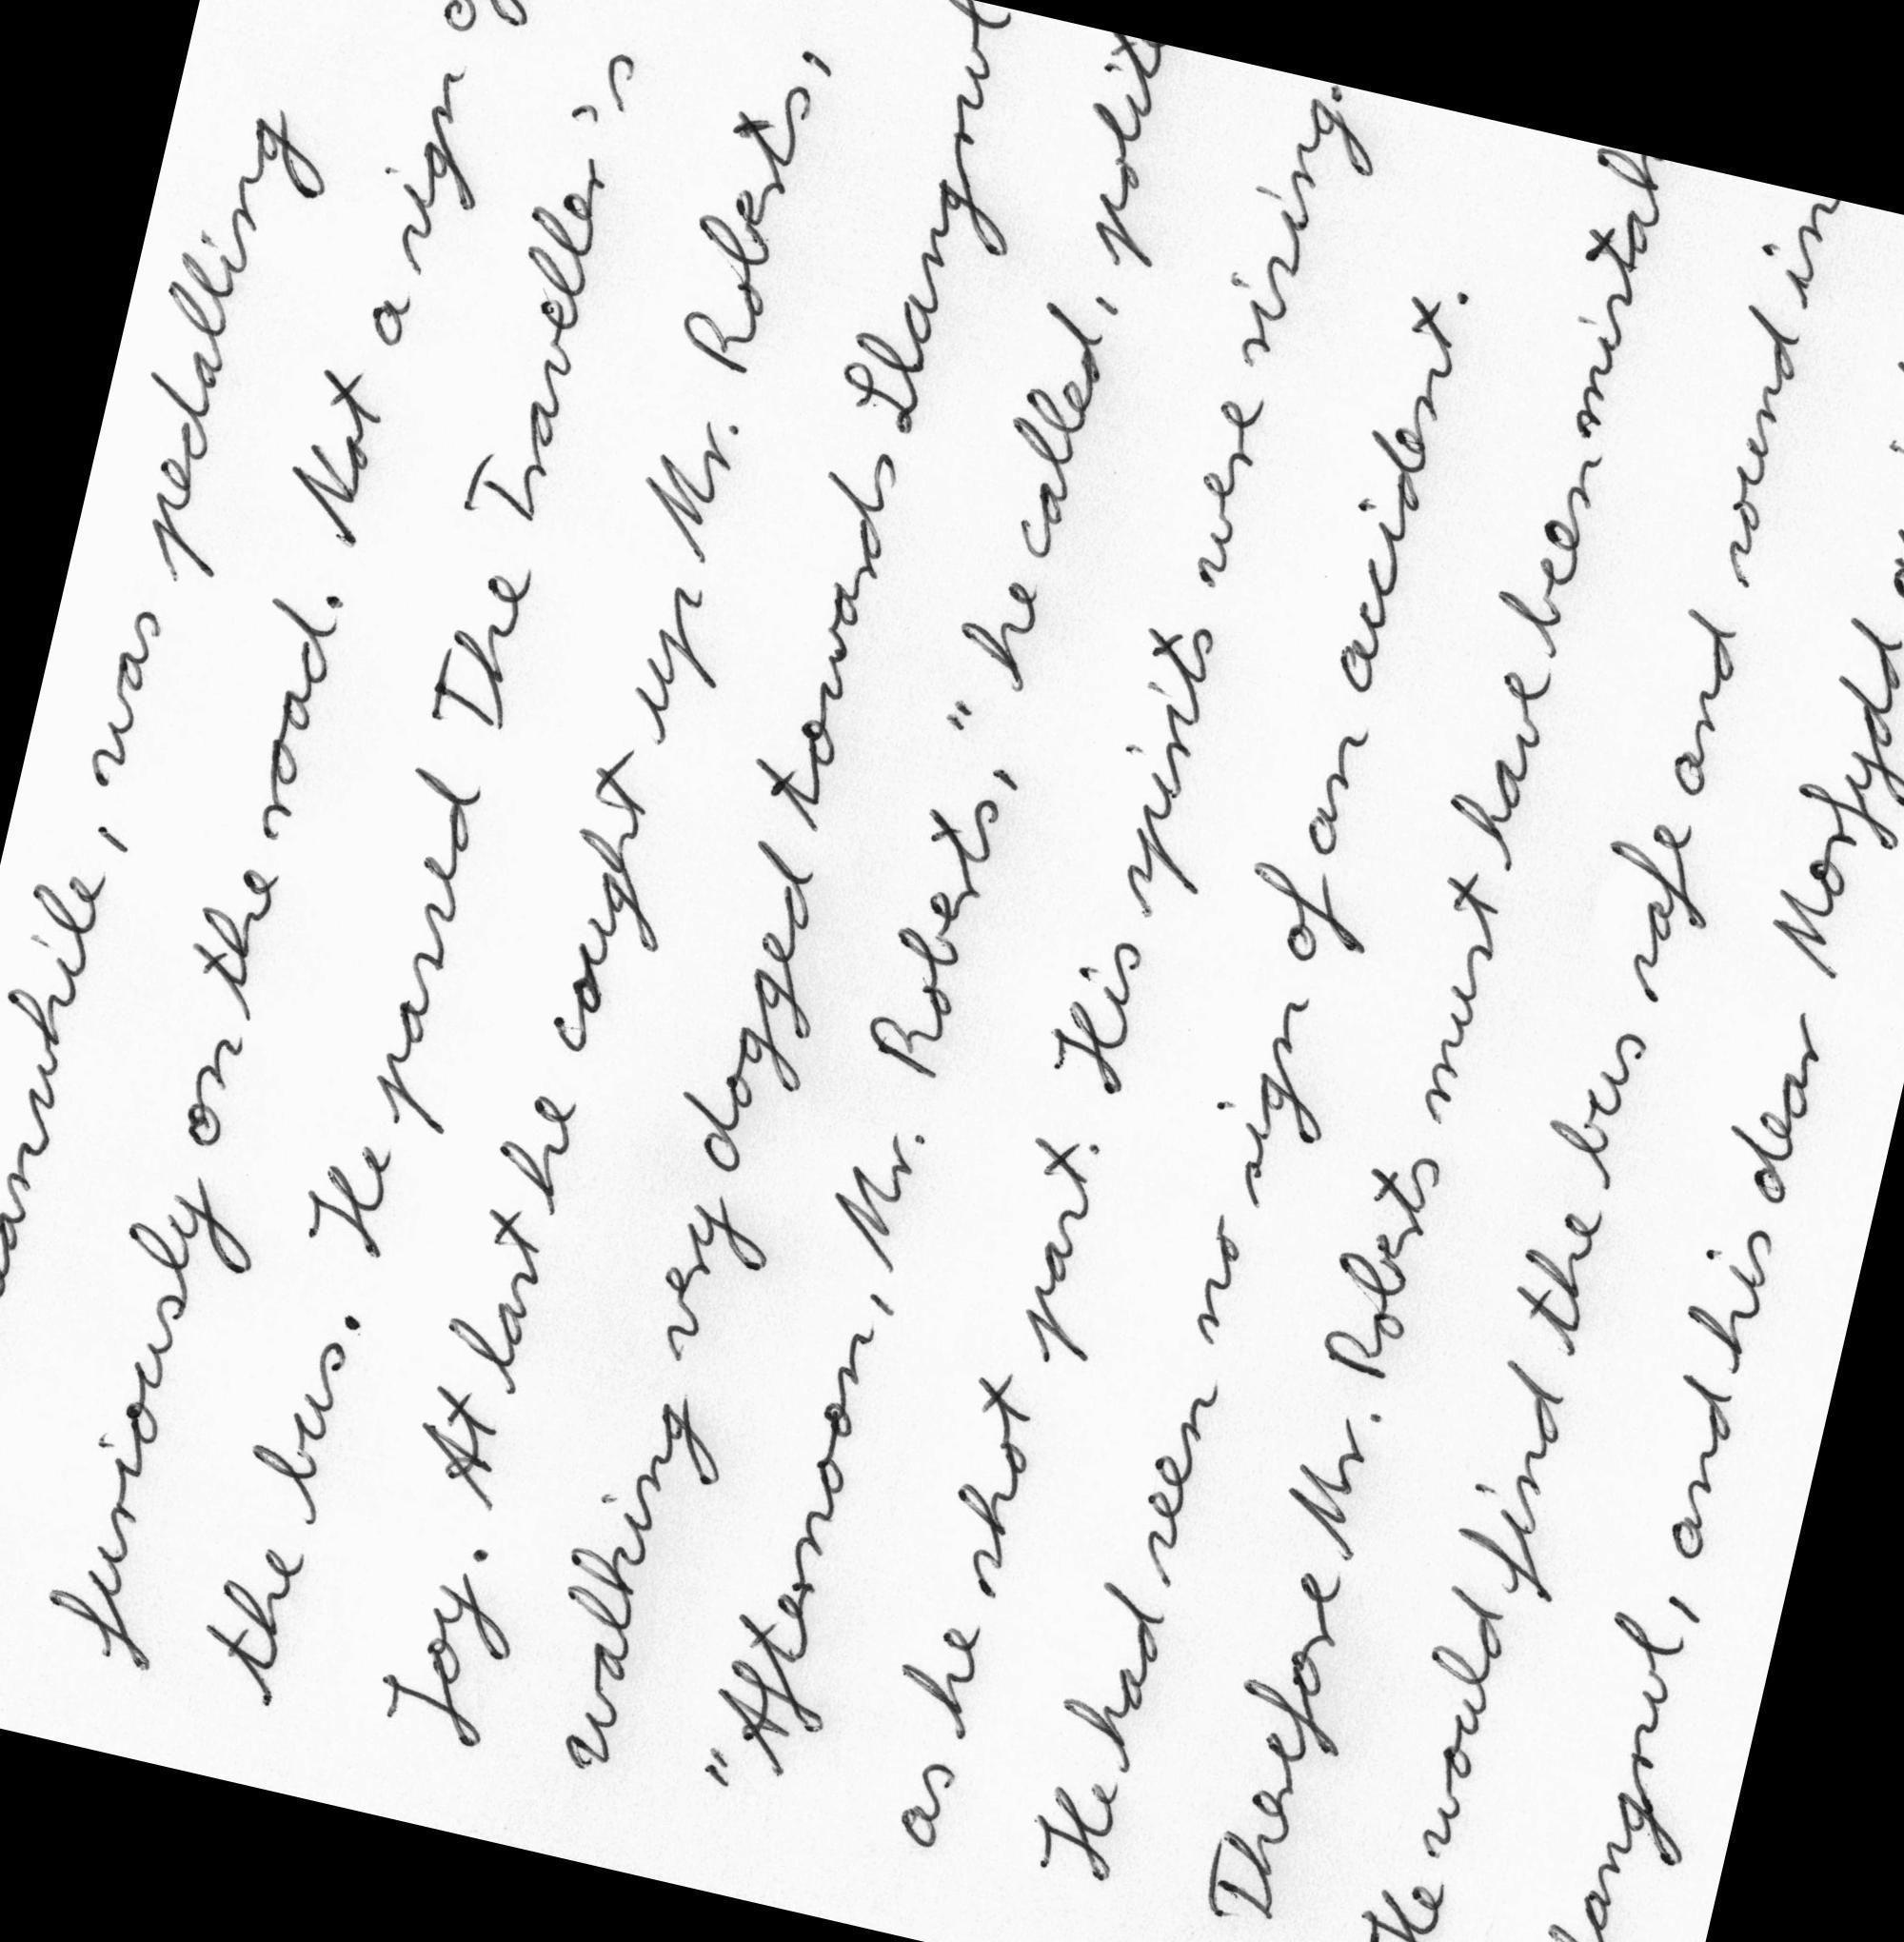 , was pedalling
furiously on the road. Not a sign
the bus. He passed The Traveller's
Joy. At last he caught up Mr. Roberts,
walking very dogged towards
"Afternoon, Mr. Roberts," he called,
as he shot past. His spirits were rising.
He had seen no sign of an accident.
Therefore Mr. Roberts must have been
He would find the bus safe and sound in
, and his dear Morfydd